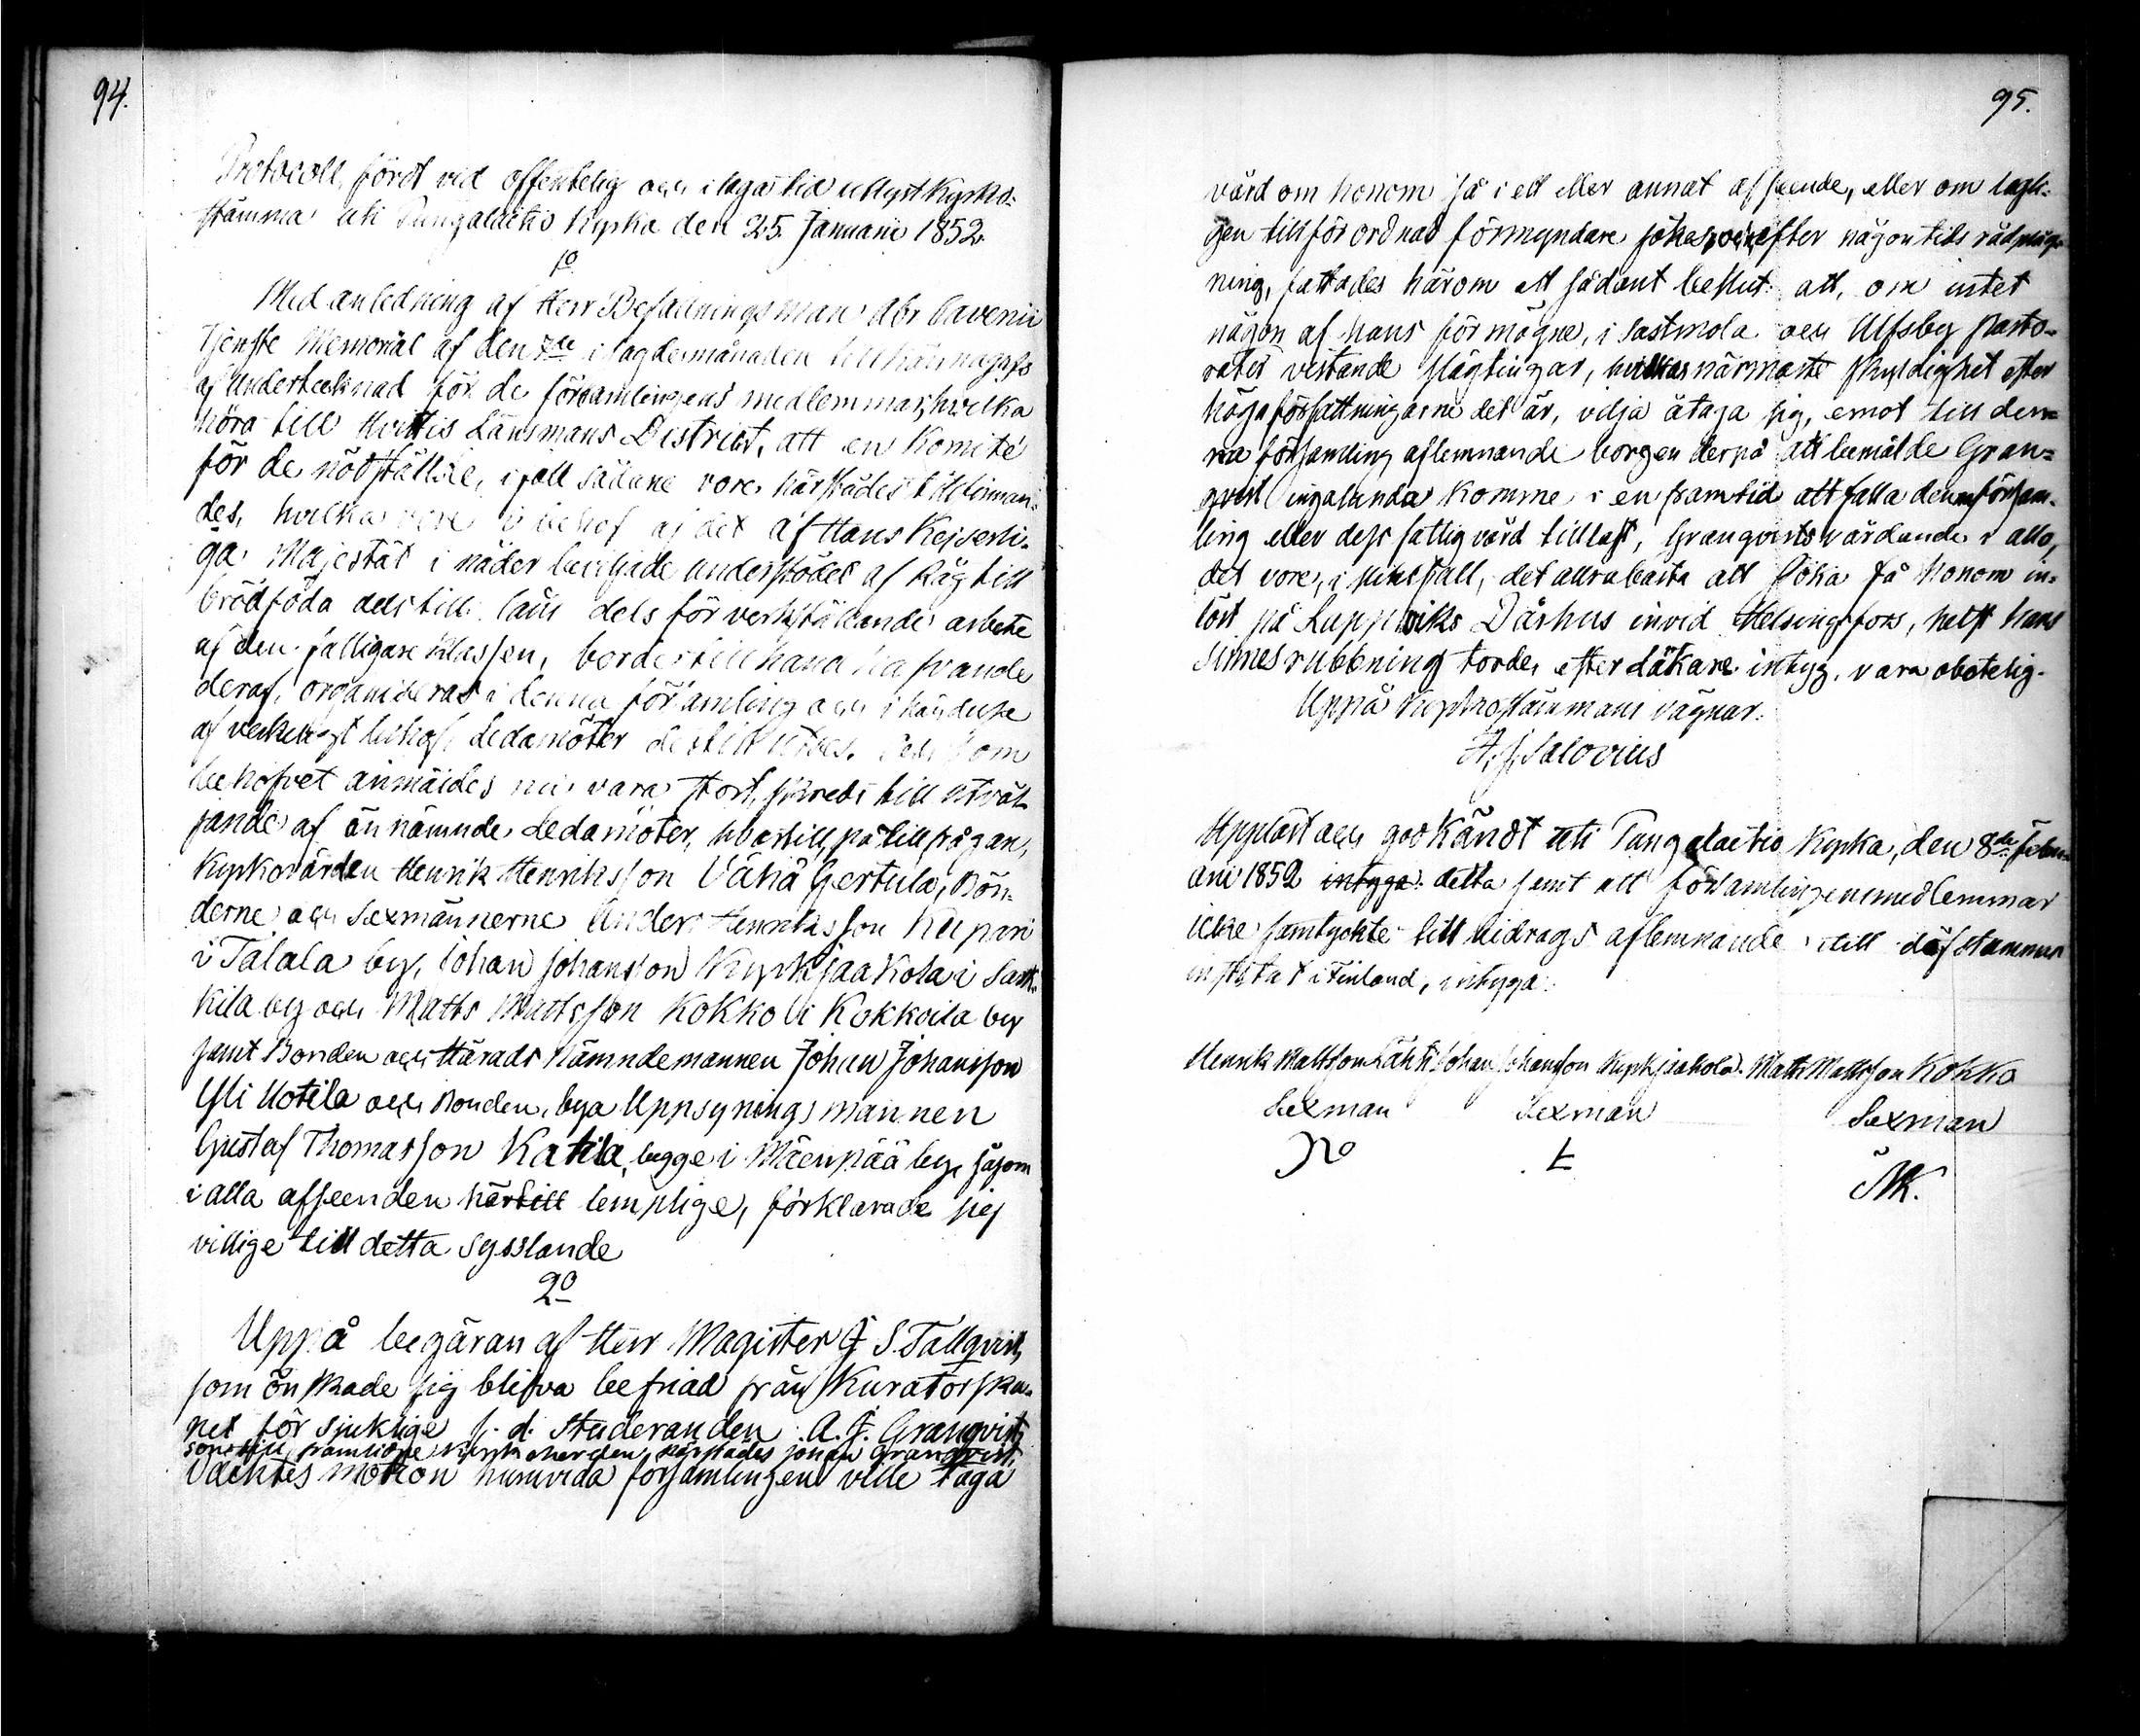 94.
Protocoll, fördt vid offentelig och i laga tid utlyst Kyrko-
stämma uti Pungalaitio Kyrka den 25. Januarii 1852.
1o
Med anledning af Herr Befallningsman Abr Cavenii
Tjenste Memorial af den 7de i sagde månaden tillkännagafs
af Undertecknad för de församlingens medlemmar, hvilka
höra till Hvittis Länsmans District, att en Komité
för de nödställde, i fall sådane vore härstädes tillfinnan-
des, hvilka vore i behof af det af Hans Kejserli-
ga Majestät i nåder beviljade understödet af Råg till
brödföda dels till lån dels för verkställande arbete
af den fattigare klassen, borde till hand hafvande
deraf, organiseras i denna församling och i händelse
af verkeligt behof, Ledamöter dertill utses. Och som
behofvet anmäldes nu vara stort, skreds till utväl-
jande af än nämnde Ledamöter, hvartill, på tillfrågan,
Kyrkovärden Henrik Henriksson Vähä Gertula, Bön-
derne och Sexmännerne Anders Henriksson Kupari
i Talala by, Johan Johansson Kyrk Jaakola i Sark-
kila by och Matts Mattsson Kokko i Kokkoila by
samt Bonden och Härads Nämndemannen Johan Johansson
Yli Uotila och Bonden, bya Uppsynings mannen
Gustaf Thomasson Katila, begge i Mäenpää by, såsom
i alla afseenden härtill lemplige, förklarade sig
villige till detta sysslande
2o
Uppå begäran af Herr Magister J S. Tallqvist,
som önskade sig blifva befriad från Kuratorska-
pet för sjuklige f. d. Studeranden A. J. Granqvist,
son till framlidne Kyrkoherden härstädes Johan Granqvist,
Väcktes motion huruvida församlingen ville taga
95.
vård om honom på i ett eller annat afseende, eller om lagli-
gen tillförordnad förmyndare sökes, och efter någon tids rådpläg-
ning, fattades härom ett sådant beslut: att, om intet
någon af hans förmögne, i Sastmola och Ulfsby Pasto-
rater vistande slägtingar, hvilkas närmaste skyldighet efter
höga författningarne det är, vilja åtaga sig, emot till den-
na församling aflemnande borgen derpå att bemälde Gran-
qvist ingalunda komme i en framtid att falla denna försam-
ling eller dess fattigvård till last, Granqvists vårdande i allo,
det vore, i slikt fall, det allrabästa att söka få honom in-
löst på Lappviks Dårhus invid Helsingfors, helst hans
sinnes rubbning torde, efter Läkare intyg, vara obotelig.
Uppå Kyrkostämmans vägnar:
A. J. Salovius
Uppläst och godkändt uti Pungalaitio Kyrka, den 8de Febru-
arii 1852 intyga: detta jemt att församlingens medlemmar
icke samtyckte till bidrags aflemnande till döfstummes
institut i Finland, intyga:
Henrik Mattsson Lähti Johan Johansson Kyrkjaakola. Matts Mattsson Kokko
Sexman Sexman Sexman
MK.